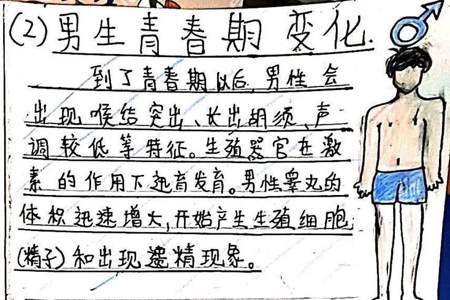 (2)男生青春期变化.
到了青春期以后,男性会
出现喉结突出、长出胡须、声
调较低等特征。生殖器官在激
素的作用下迅育发育。男性睾丸的
体积迅速增大,开始产生生殖细胞
(精子)和出现遗精现象。